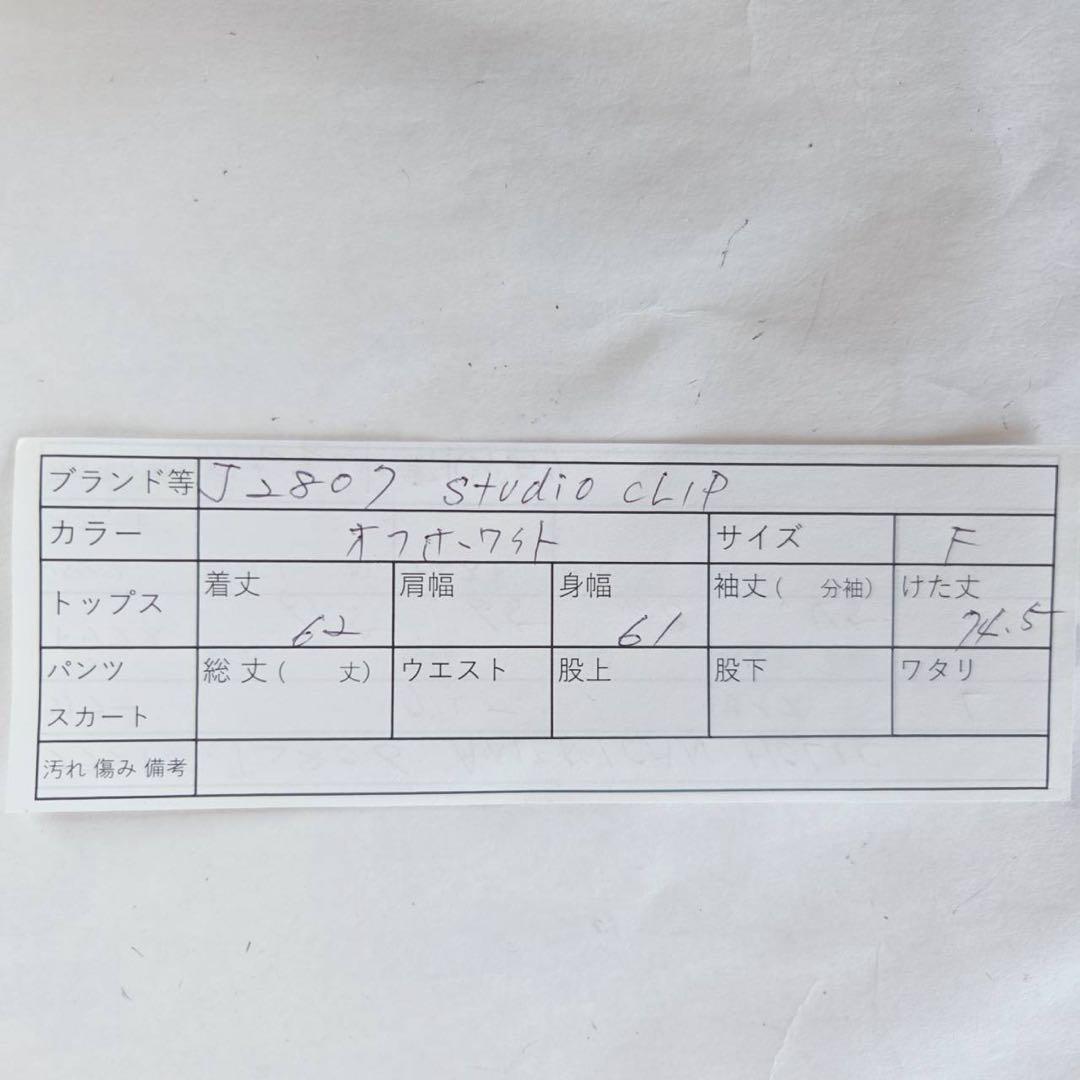 ブランド等 J2807 studio CLIP
カラー オフホワイト サイズ F
トップス 着丈 62 肩幅 身幅 61 袖丈( 分袖) けた丈 74.5
パンツ スカート 総丈( 丈) ウエスト 股上 股下 ワタリ
汚れ 傷み 備考